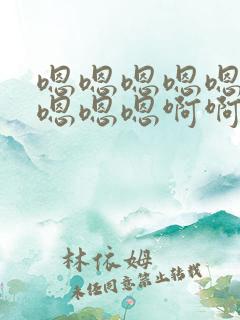 嗯嗯嗯嗯嗯
嗯嗯嗯啊啊
林依姆
未经同意禁止转载